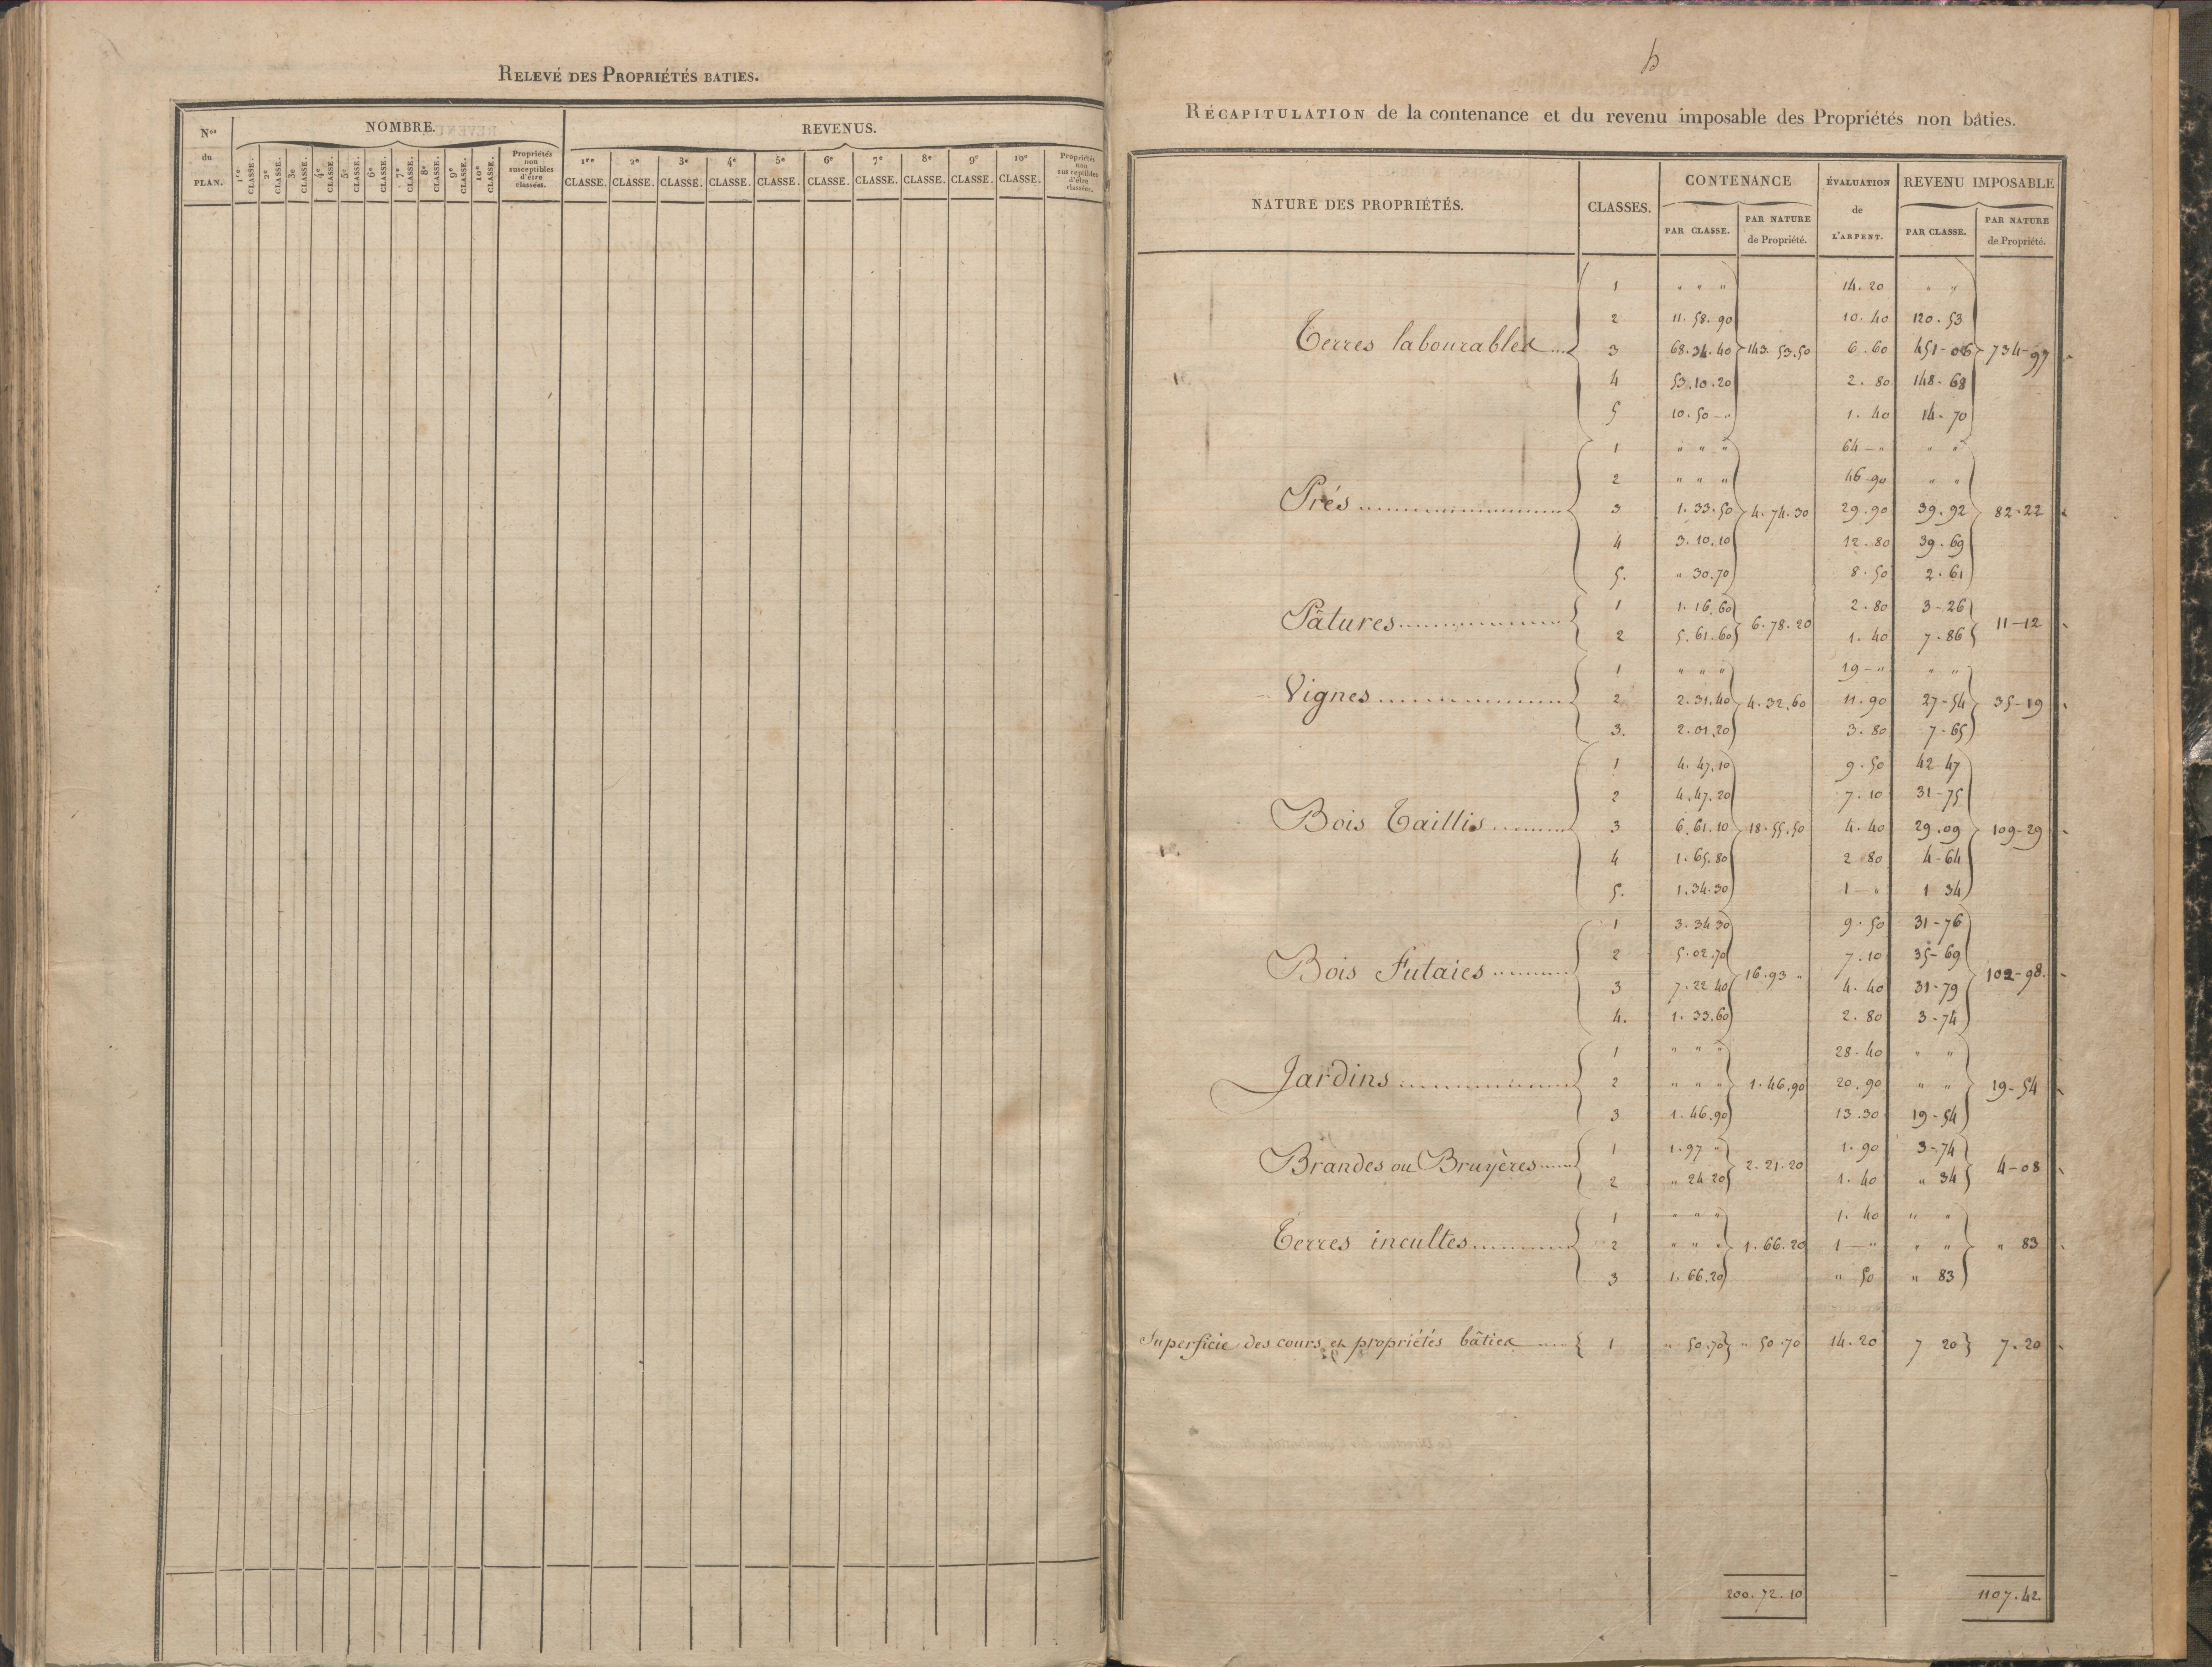 RELEVÉ DES PROPRIÉTÉS BATIES.
Nos du PLAN.
NOMBRE.
REVENUS.
1re CLASSE. 2e CLASSE. 3e CLASSE. 4e CLASSE. 5e CLASSE. 6e CLASSE. 7e CLASSE. 8e CLASSE. 9e CLASSE. 10e CLASSE. Propriétés non susceptibles d'être classées.
1re CLASSE. 2e CLASSE. 3e CLASSE. 4e CLASSE. 5e CLASSE. 6e CLASSE. 7e CLASSE. 8e CLASSE. 9e CLASSE. 10e CLASSE. Propriétés non susceptibles d'être classées.
RÉCAPITULATION de la contenance et du revenu imposable des Propriétés non bâties.
NATURE DES PROPRIÉTÉS. CLASSES. CONTENANCE ÉVALUATION de L'ARPENT. REVENU IMPOSABLE
PAR CLASSE. PAR NATURE de Propriété. PAR CLASSE. PAR NATURE de Propriété.
1 " " " 14.20 " "
2 11.58.90 10.40 120.53
Terres labourables 3 68.34.40 143.53.50 6.60 451-06 734-97
4 53.10.20 2.80 148-68
5 10.50-" 1.40 14-70
1 " " " 64-" " "
2 " " " 46-90 " "
Prés 3 1.33.50 4.74.30 29.90 39.92 82.22
4 3.10.10 12.80 39.69
5. " 30.70 8.50 2.61
1 1.16.60 2.80 3-26
Pâtures 6.78.20 11-12
2 5.61.60 1.40 7-86
1 " " " 19-" " "
Vignes 2 2.31.40 4.32.60 11.90 27-54 35-19
3. 2.01.20 3.80 7-65
1 4.47.10 9.50 42 47
2 4.47.20 7.10 31-75
Bois Taillis 3 6.61.10 18.55.50 4.40 29.09 109-29
4 1.65.80 2 80 4-64
5. 1.34.30 1-" 1 34
1 3.34 30 9.50 31-76
2 5.02.70 7.10 35-69
Bois Futaies 16.93 " 102-98.
3 7.22 40 4.40 31-79
4. 1.33.60 2.80 3-74
1 " " " 28.40 " "
Jardins 2 " " " 1.46.90 20.90 " " 19-54
3 1.46.90 13.30 19-54
1 1.97 " 1.90 3-74
Brandes ou Bruyères 2.21.20 4-08
2 " 24 20 1.40 " 34
1 " " " 1.40 " "
Terres incultes 2 " " " 1.66.20 1-" " " " 83
3 1.66.20 " 50 " 83
Superficie des cours et propriétés bâties 1 " 50.70 " 50.70 14.20 7 20 7.20
200.72.10 1107.42.